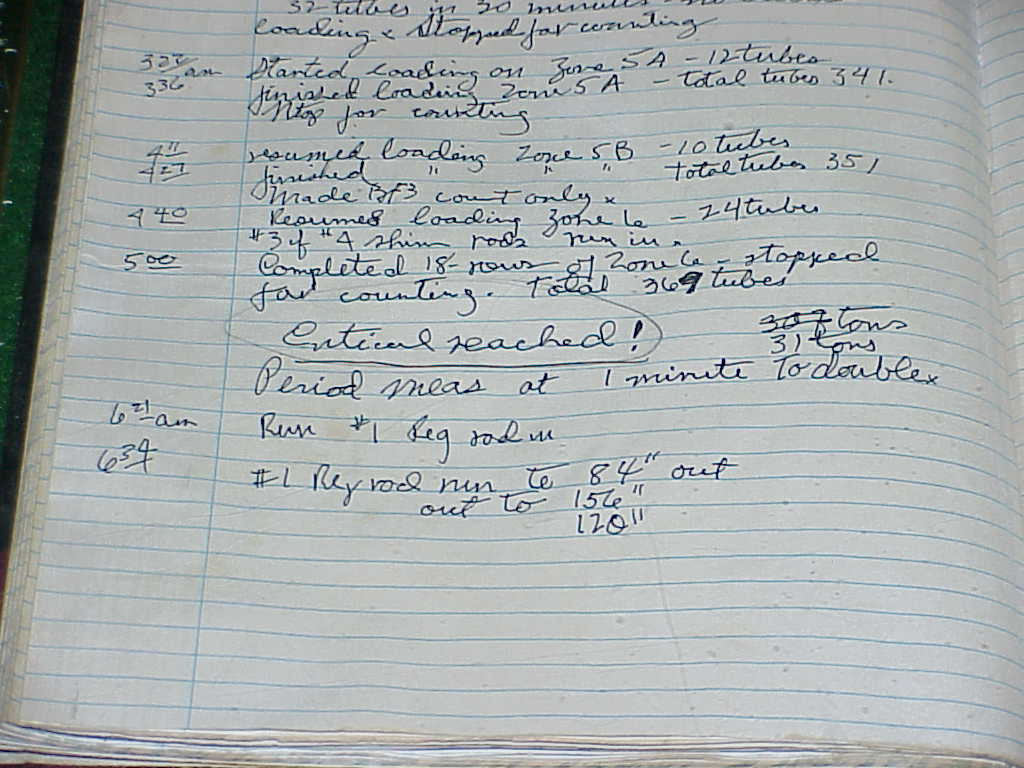 32 tubes in 30 minutes
loading & Stopped for counting
3 27 am Started loading on Zone 5A - 12 tubes
3 36 finished loading Zone 5A - total tubes 341.
Stop for counting
4 11 resumed loading Zone 5B - 10 tubes
4 27 finished " " " total tubes 351
Made BF3 count only x
4 40 Resumed loading Zone 6 - 24 tubes
#3 & #4 shim rods run in.
5 00 Completed 18-rows of Zone 6 - stopped
for counting. Total 369 tubes
Critical reached! 307 tons
31 tons
Period meas at 1 minute to double x
6 21 am Run #1 Reg rod in
6 34 #1 Reg rod run to 84" out
out to 156"
120"